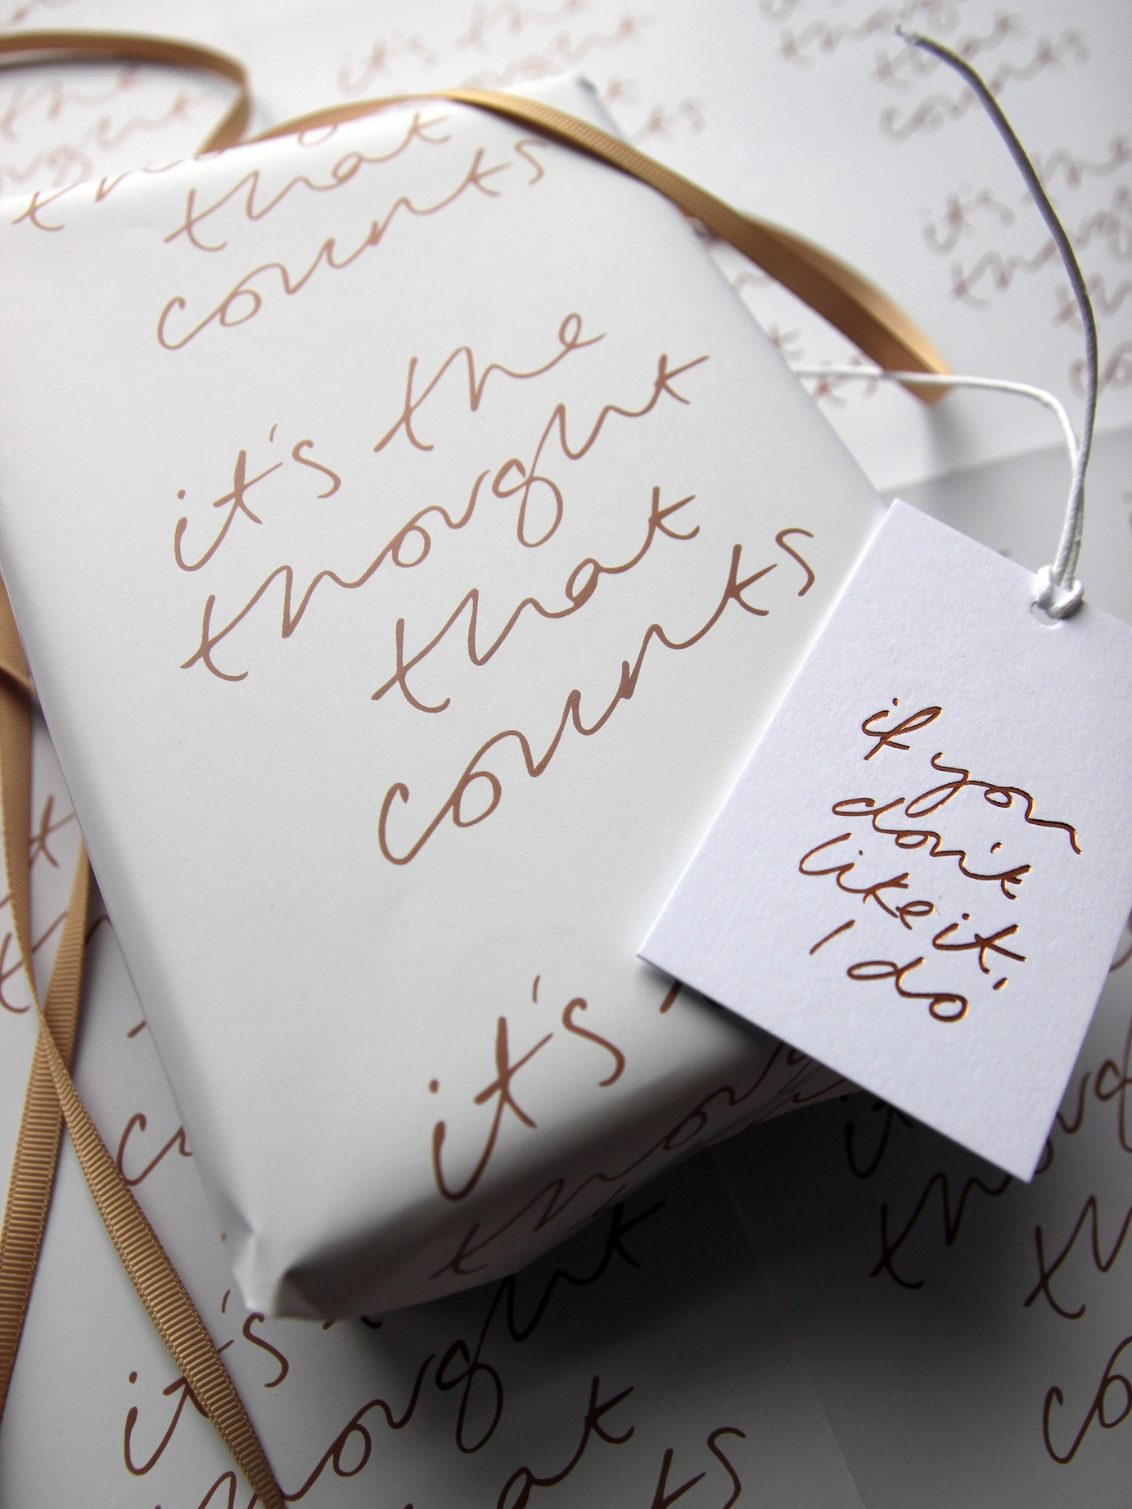 that
counts
it's the
thought
that
counts
it's
thought
if you
don't
like it,
I do
it's
thought
that
counts
it's the
thought
that
counts
it's the